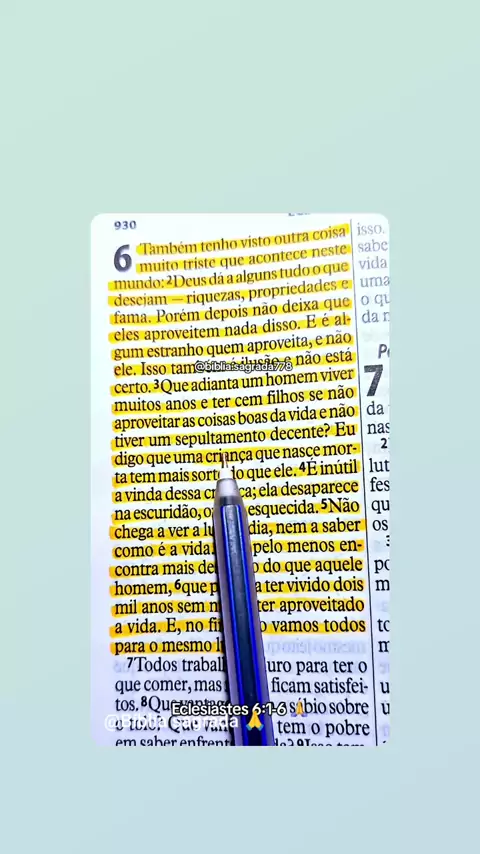 930
6 Também tenho visto outra coisa
muito triste que acontece neste
mundo: 2Deus dá a alguns tudo o que
desejam — riquezas, propriedades e
fama. Porém depois não deixa que
eles aproveitem nada disso. E é al-
gum estranho quem aproveita, e não
ele. Isso também é ilusão e não está
@biblia.sagrada778
certo. 3Que adianta um homem viver
muitos anos e ter cem filhos se não
aproveitar as coisas boas da vida e não
tiver um sepultamento decente? Eu
digo que uma criança que nasce mor-
ta tem mais sorte do que ele. 4É inútil
a vinda dessa ça; ela desaparece
na escuridão, esquecida. 5Não
chega a ver a lu dia, nem a saber
como é a vida. pelo menos en-
contra mais de do que aquele
homem, 6que p a ter vivido dois
mil anos sem n ter aproveitado
a vida. E, no fi o vamos todos
para o mesmo lu
7Todos trabal uro para ter o
que comer, mas ficam satisfei-
tos. 8Que vantagem sábio sobre
Eclesiastes 6:1-6 🙏
@Biblia sagrada 🙏
o tolo? Que van tem o pobre
em saber enfrent
isso.
sabe
vida
uma
o qu
da n
7
da
nas
2
lut
fes
qu
os
3
po
m
to
m
u